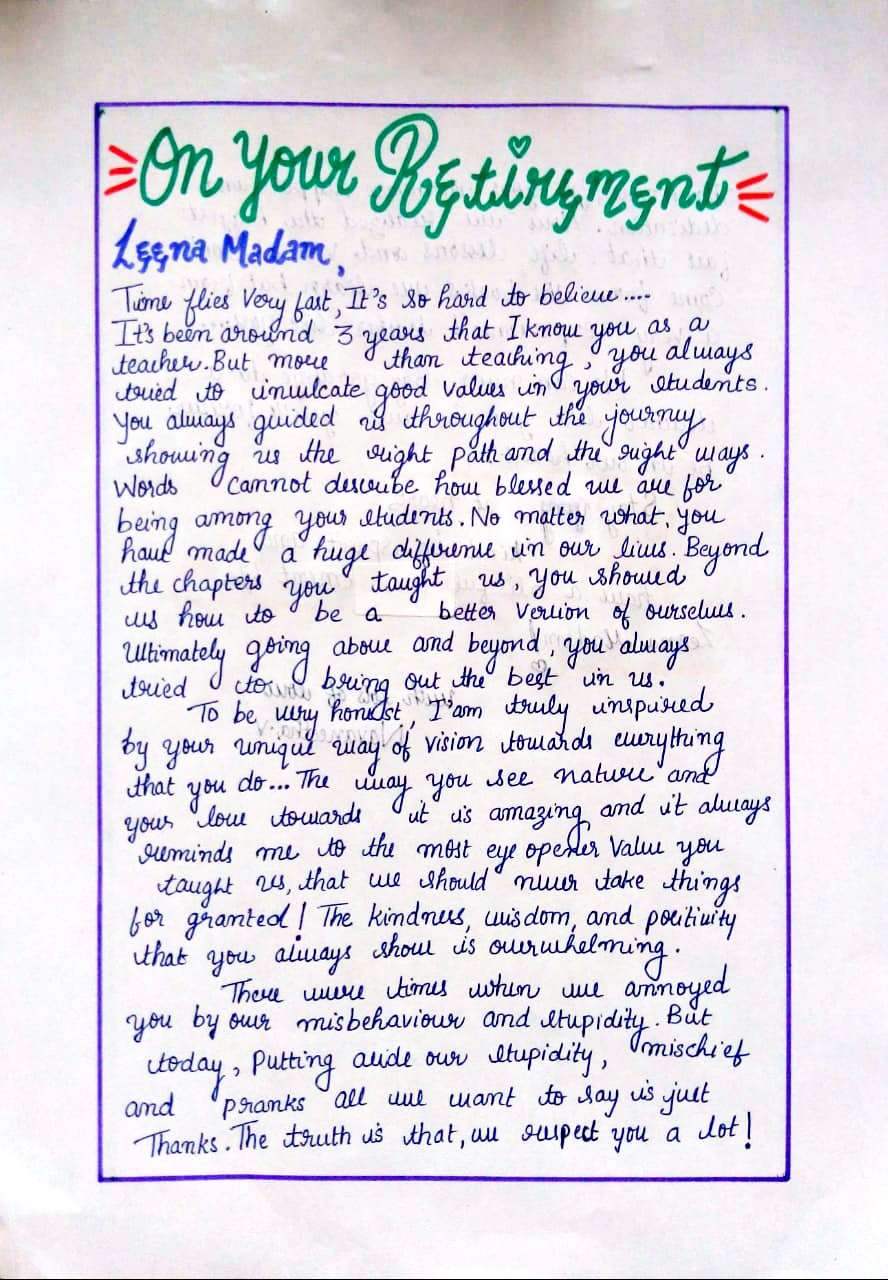 On Your Retirement
Leena Madam,
Time flies very fast, It's so hard to believe....
It's been around 3 years that I know you as a
teacher. But more than teaching, you always
tried to inculcate good values in your students.
You always guided us throughout the journey
showing us the right path and the right ways.
Words cannot describe how blessed we are for
being among your students. No matter what, you
have made a huge difference in our lives. Beyond
the chapters you taught us, you showed
us how to be a better version of ourselves.
Ultimately going above and beyond, you always
tried to bring out the best in us.
To be very honest, I'am truly inspired
by your unique way of vision towards everything
that you do... The way you see nature and
your love towards it is amazing and it always
reminds me to the most eye opener Value you
taught us, that we should never take things
for granted! The kindness, wisdom, and positivity
that you always show is overwhelming.
There were times when we annoyed
you by our misbehaviour and stupidity. But
today, Putting aside our stupidity, mischief
and pranks all we want to say is just
Thanks. The truth is that, we respect you a lot!